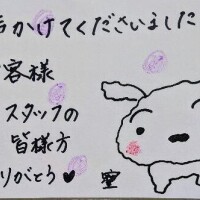 かけてくださいました
客様
スタッフの
皆様方
りがとう♥